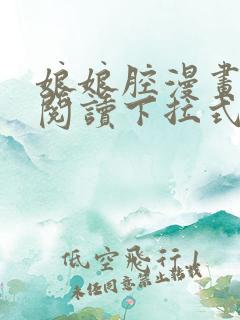 娘娘腔漫畫
閱讀下拉式
低空飛行!
未任同意禁止轉載